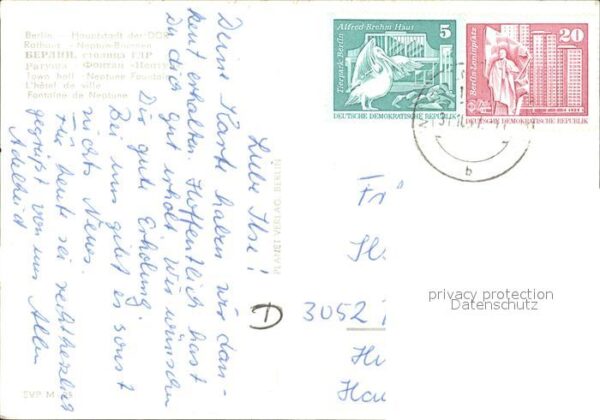 Berlin - Hauptstadt der DDR
Rathaus - Neptun-Brunnen
БЕРЛИН, столица ГДР
Ратуша - Фонтан
Town hall - Neptune Fountain
L'hôtel de ville -
Fontaine de Neptune
Liebe Ilse!
Deine Karte haben wir dan-
kend erhalten. Hoffentlich hast
Du dich gut erholt. Wir wünschen
Dir gute Erholung.
Bei uns gibt es sonst
nichts Neues.
Für heute sei recht herzlich
gegrüßt von uns Allen
Adelheid
PLANET VERLAG BERLIN
SVP M
Alfred-Brehm Haus
5
Tierpark Berlin
DEUTSCHE DEMOKRATISCHE REPUBLIK
20
Berlin-Leninplatz
DEUTSCHE DEMOKRATISCHE REPUBLIK
D
3052
privacy protection
Datenschutz